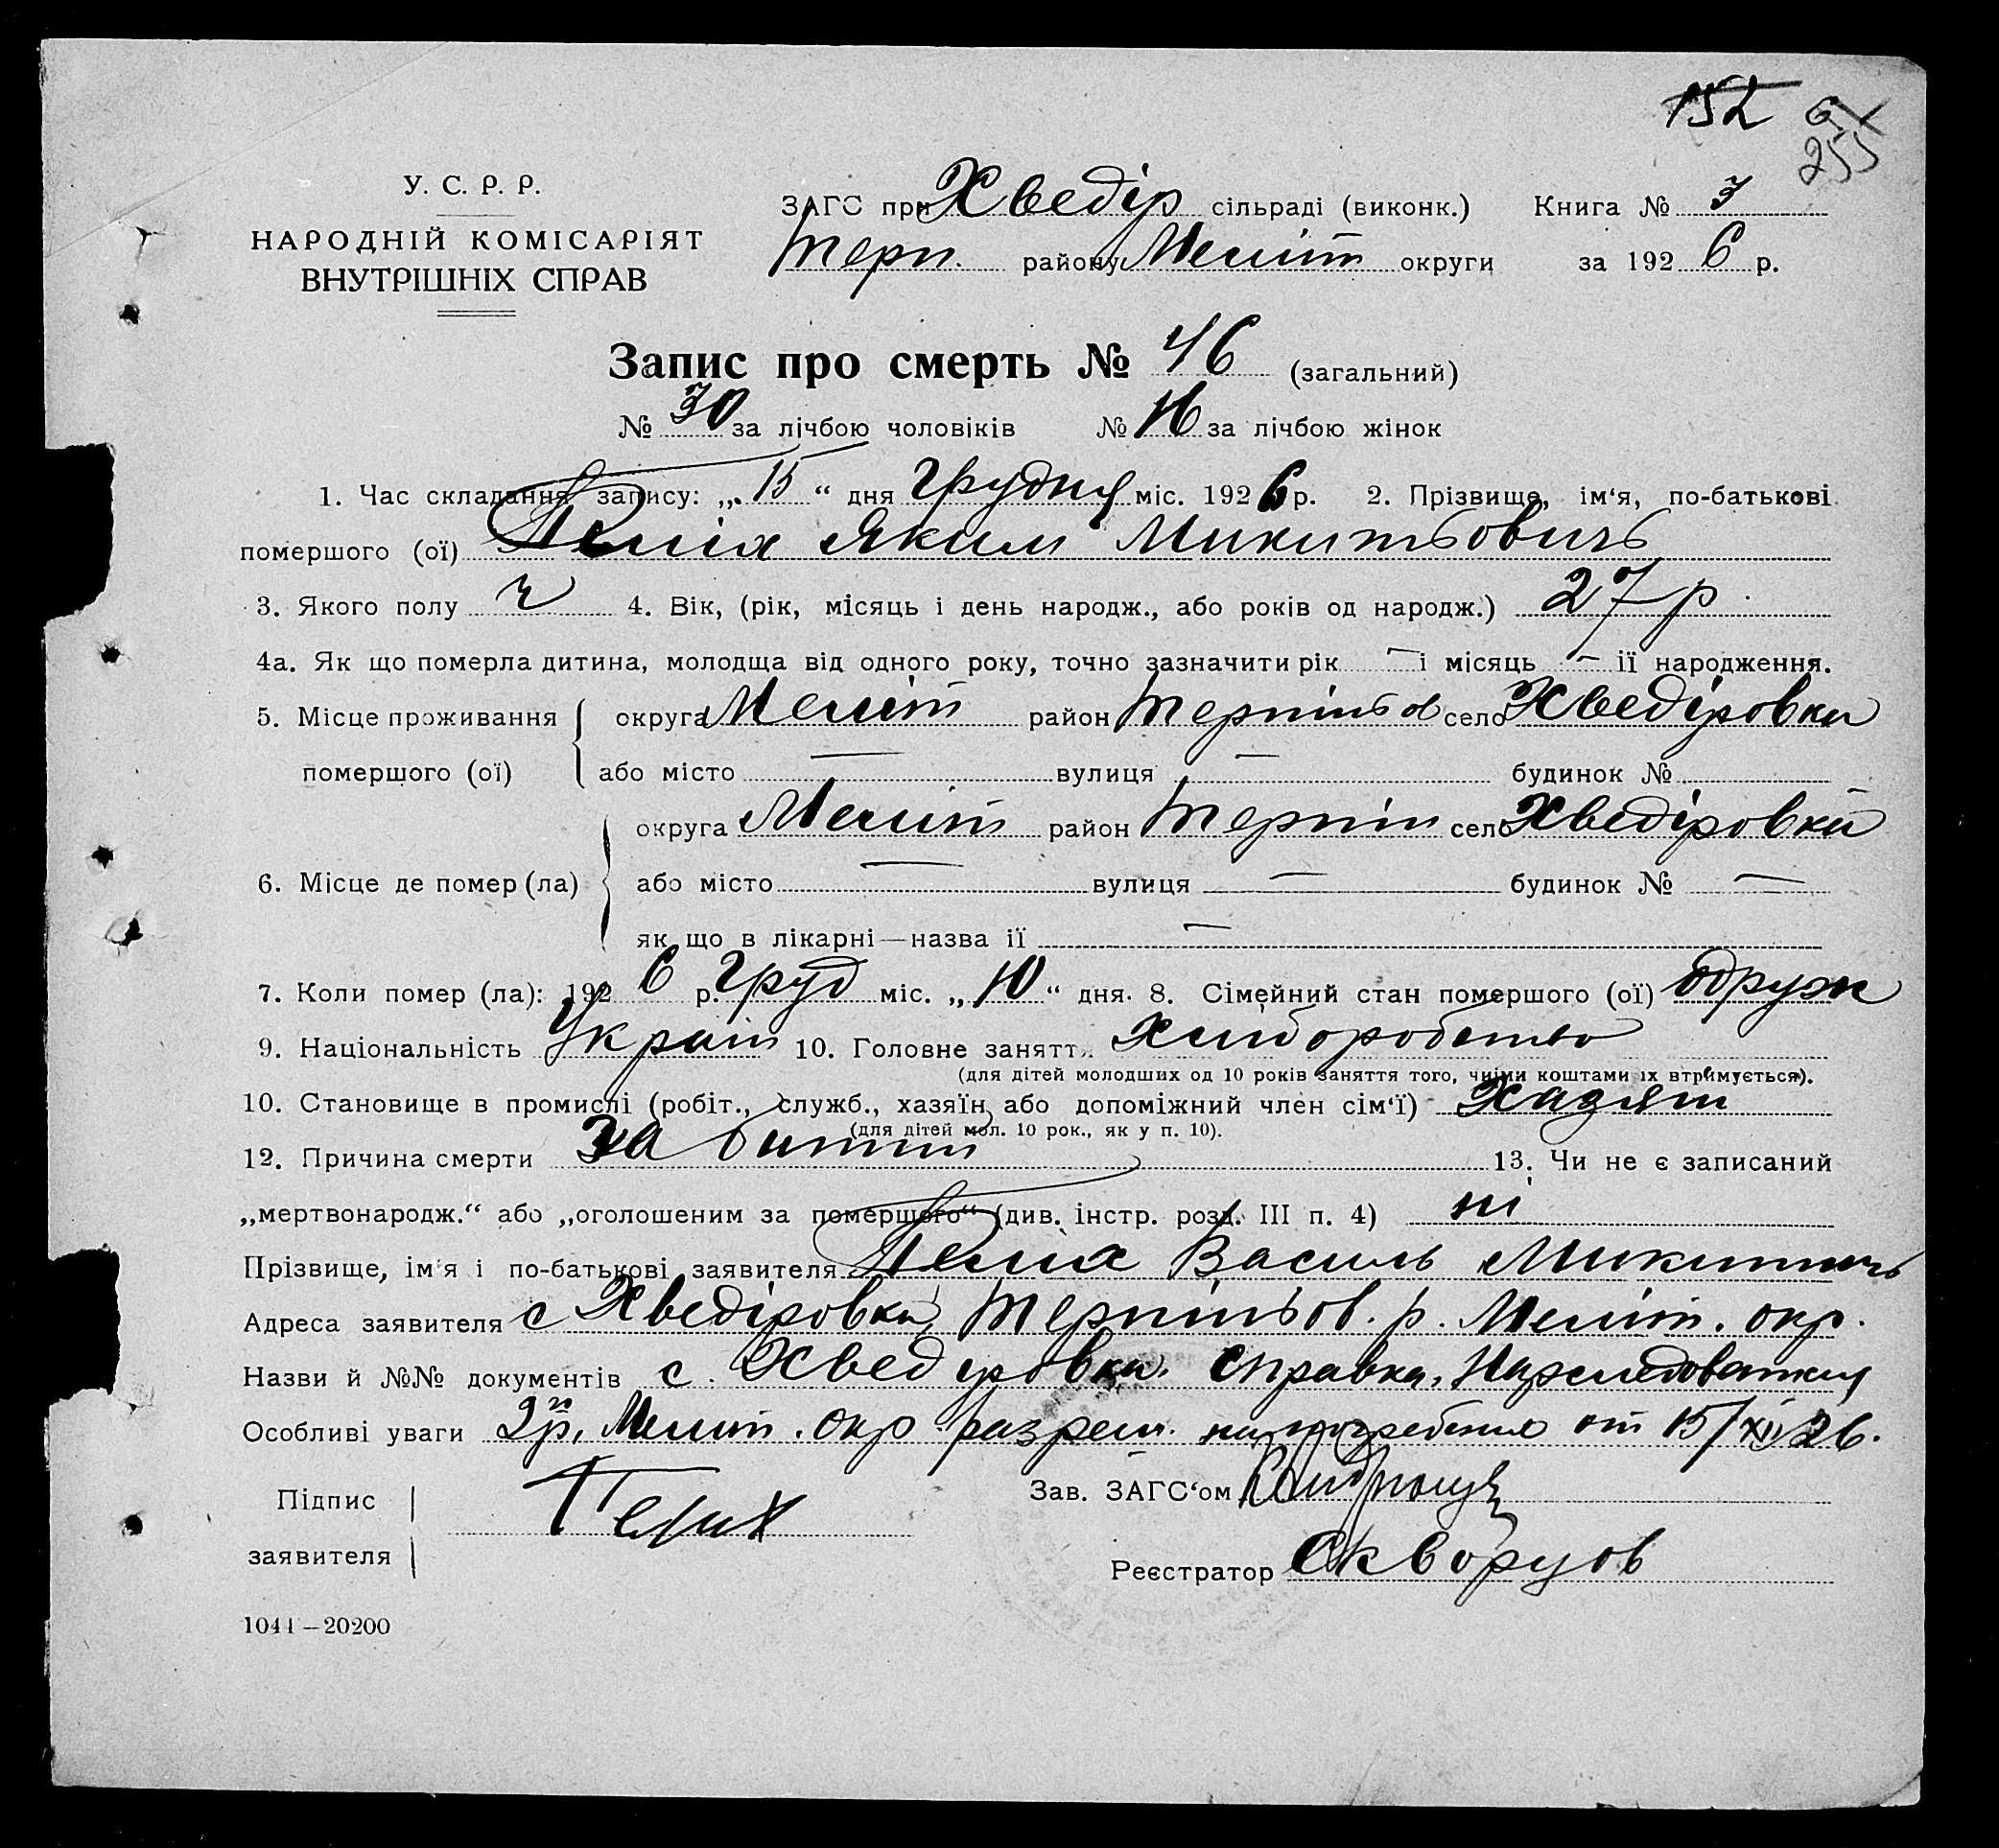 152 6
255
У. С. Р. Р.
НАРОДНІЙ КОМІСАРІЯТ
ВНУТРІШНІХ СПРАВ
ЗАГС при Хведір сільраді (виконк.) Книга № 3
Терп. району Меліт округи за 192 6 р.
Запис про смерть № 46 (загальний)
№ 30 за лічбою чоловіків № 16 за лічбою жінок
1. Час складання запису: „ 15 “ дня Грудня міс. 192 6 р. 2. Прізвище, ім‘я, по-батькові
помершого (ої) Пеліх Яким Микитьовичь
3. Якого полу ч 4. Вік, (рік, місяць і день народж., або років од народж.) 27 р.
4а. Як що померла дитина, молодща від одного року, точно зазначити рік — і місяць — ії народження.
5. Місце проживання округа Меліт район Терпіньов село Хведіровки
помершого (ої) або місто — вулиця — будинок №
округа Меліт район Терпін село Хведіровки
6. Місце де помер (ла) або місто — вулиця — будинок № —
як що в лікарні—назва ії —
7. Коли помер (ла): 192 6 р. Груд міс. „ 10 “ дня. 8. Сімейний стан помершого (ої) одруж
9. Національність Україн 10. Головне занятт. Хліборобство
(для дітей молодших од 10 років заняття того, чиїми коштами їх втримується).
10. Становище в промислі (робіт., служб., хазяїн або допоміжний член сім‘ї) Хазяїн
(для дітей мол. 10 рок., як у п. 10).
12. Причина смерти Забитий 13. Чи не є записаний
„мертвонародж.“ або „оголошеним за помершого“ (див. інстр. розд. III п. 4) ні
Прізвище, ім‘я і по-батькові заявителя Пеліх Василь Микитичь
Адреса заявителя с Хведіровка, Терпіньов. р. Меліт. окр.
Назви й №№ документів с. Хведіровка. Справка, Нарследователя
Особливі уваги 2 р, Меліт. окр разреш. на погребение от 15/XII 26.
Підпис Пелих Зав. ЗАГС‘ом
заявителя Реєстратор Скворцов
1044—20200